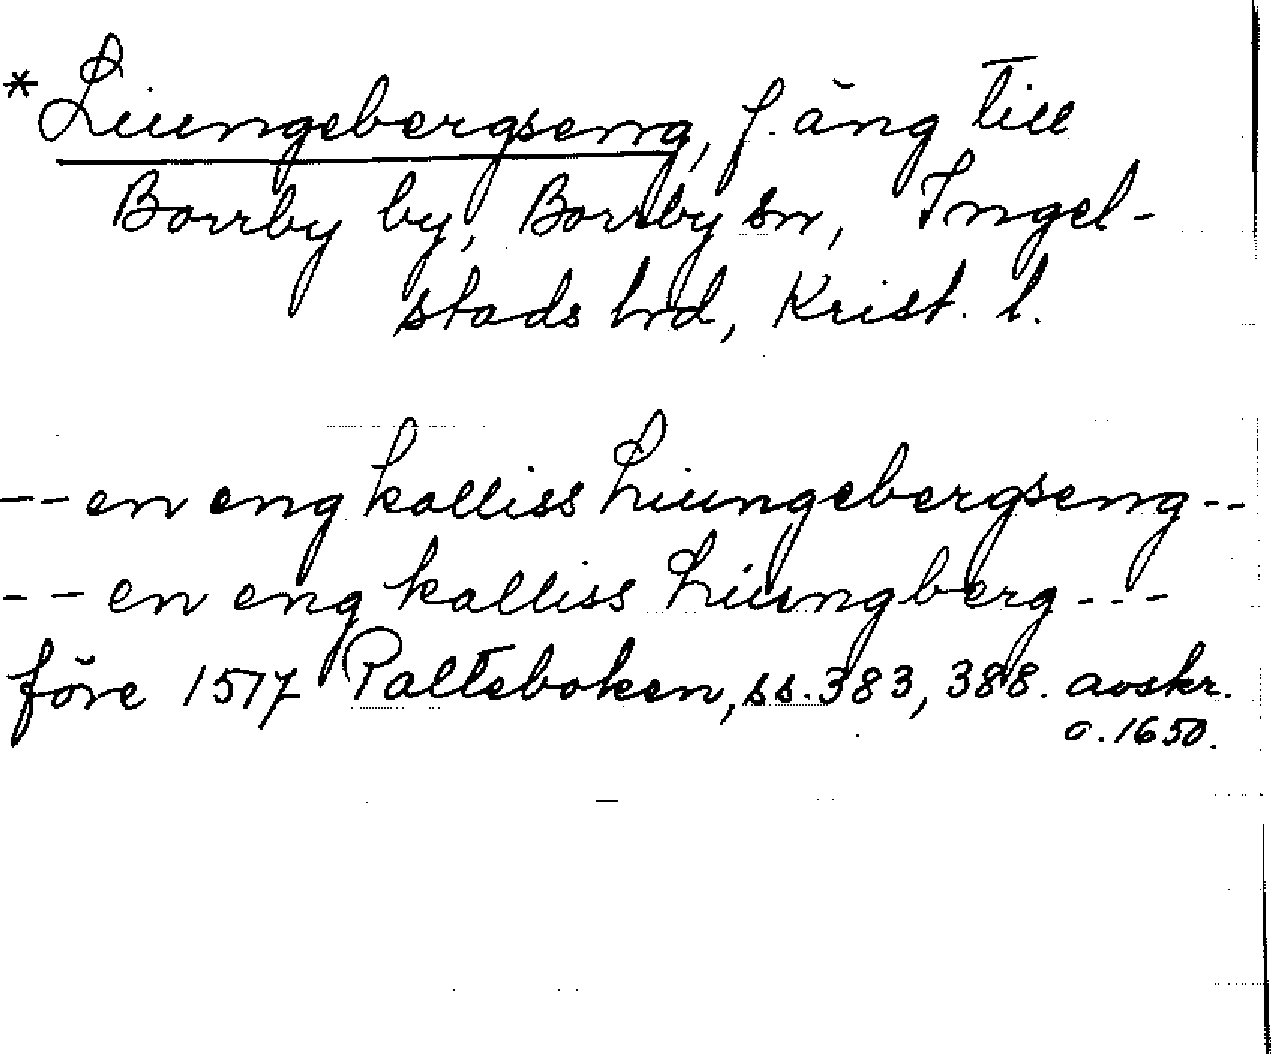 *Liungebergseng, f. äng till
Borrby by, Borrby sn, Ingel-
stads hrd, Krist. l.
--en eng kalliss Liungebergseng--
--en eng kalliss Liungberg---
före 1517 Palteboken, ss. 383, 388. avskr.
o. 1650.